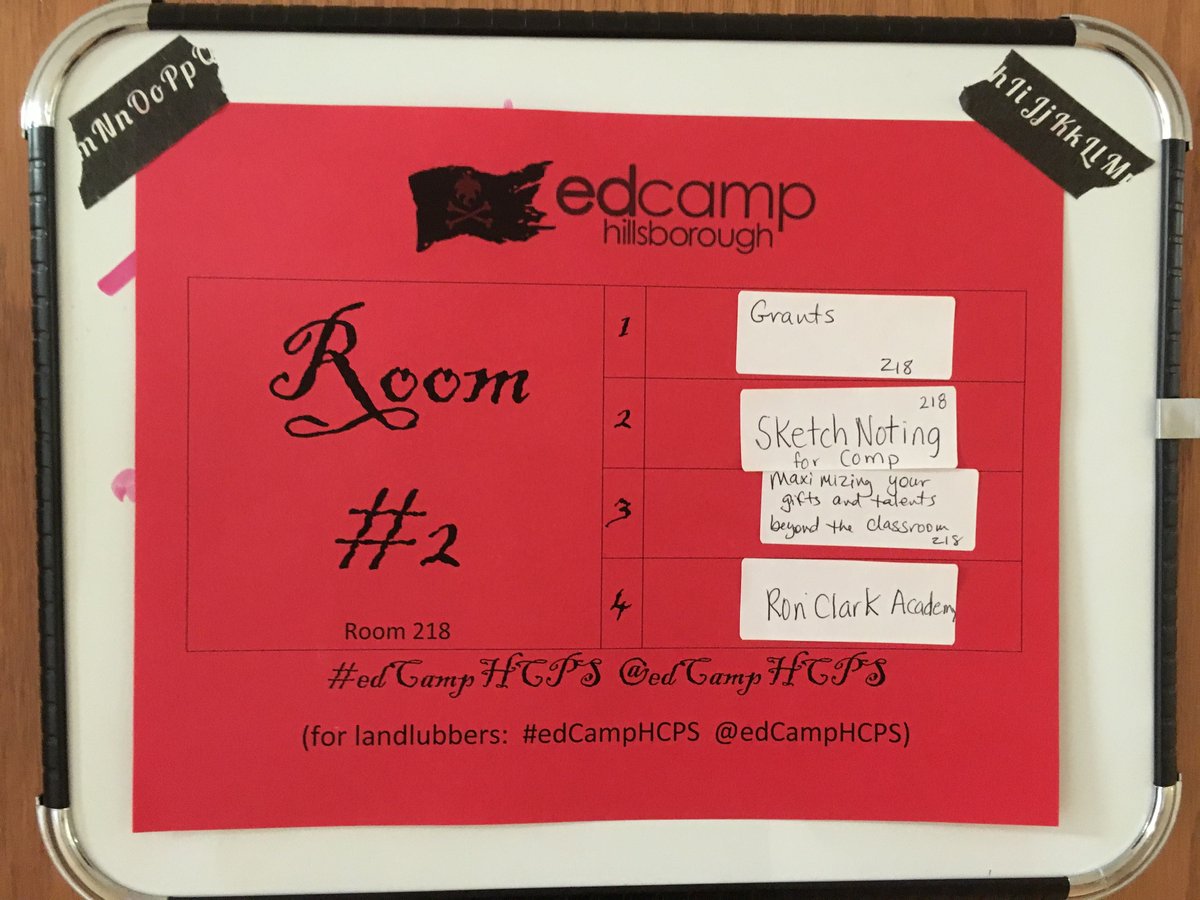 mNnOoPpQ
hIiJjKkLlM
edcamp
hillsborough
Room
#2
Room 218
1
Grants
218
2
218
Sketch Noting
for Comp
3
Maximizing your
gifts and talents
beyond the classroom
218
4
Ron Clark Academy
#edCampHCPS @edCampHCPS
(for landlubbers: #edCampHCPS @edCampHCPS)